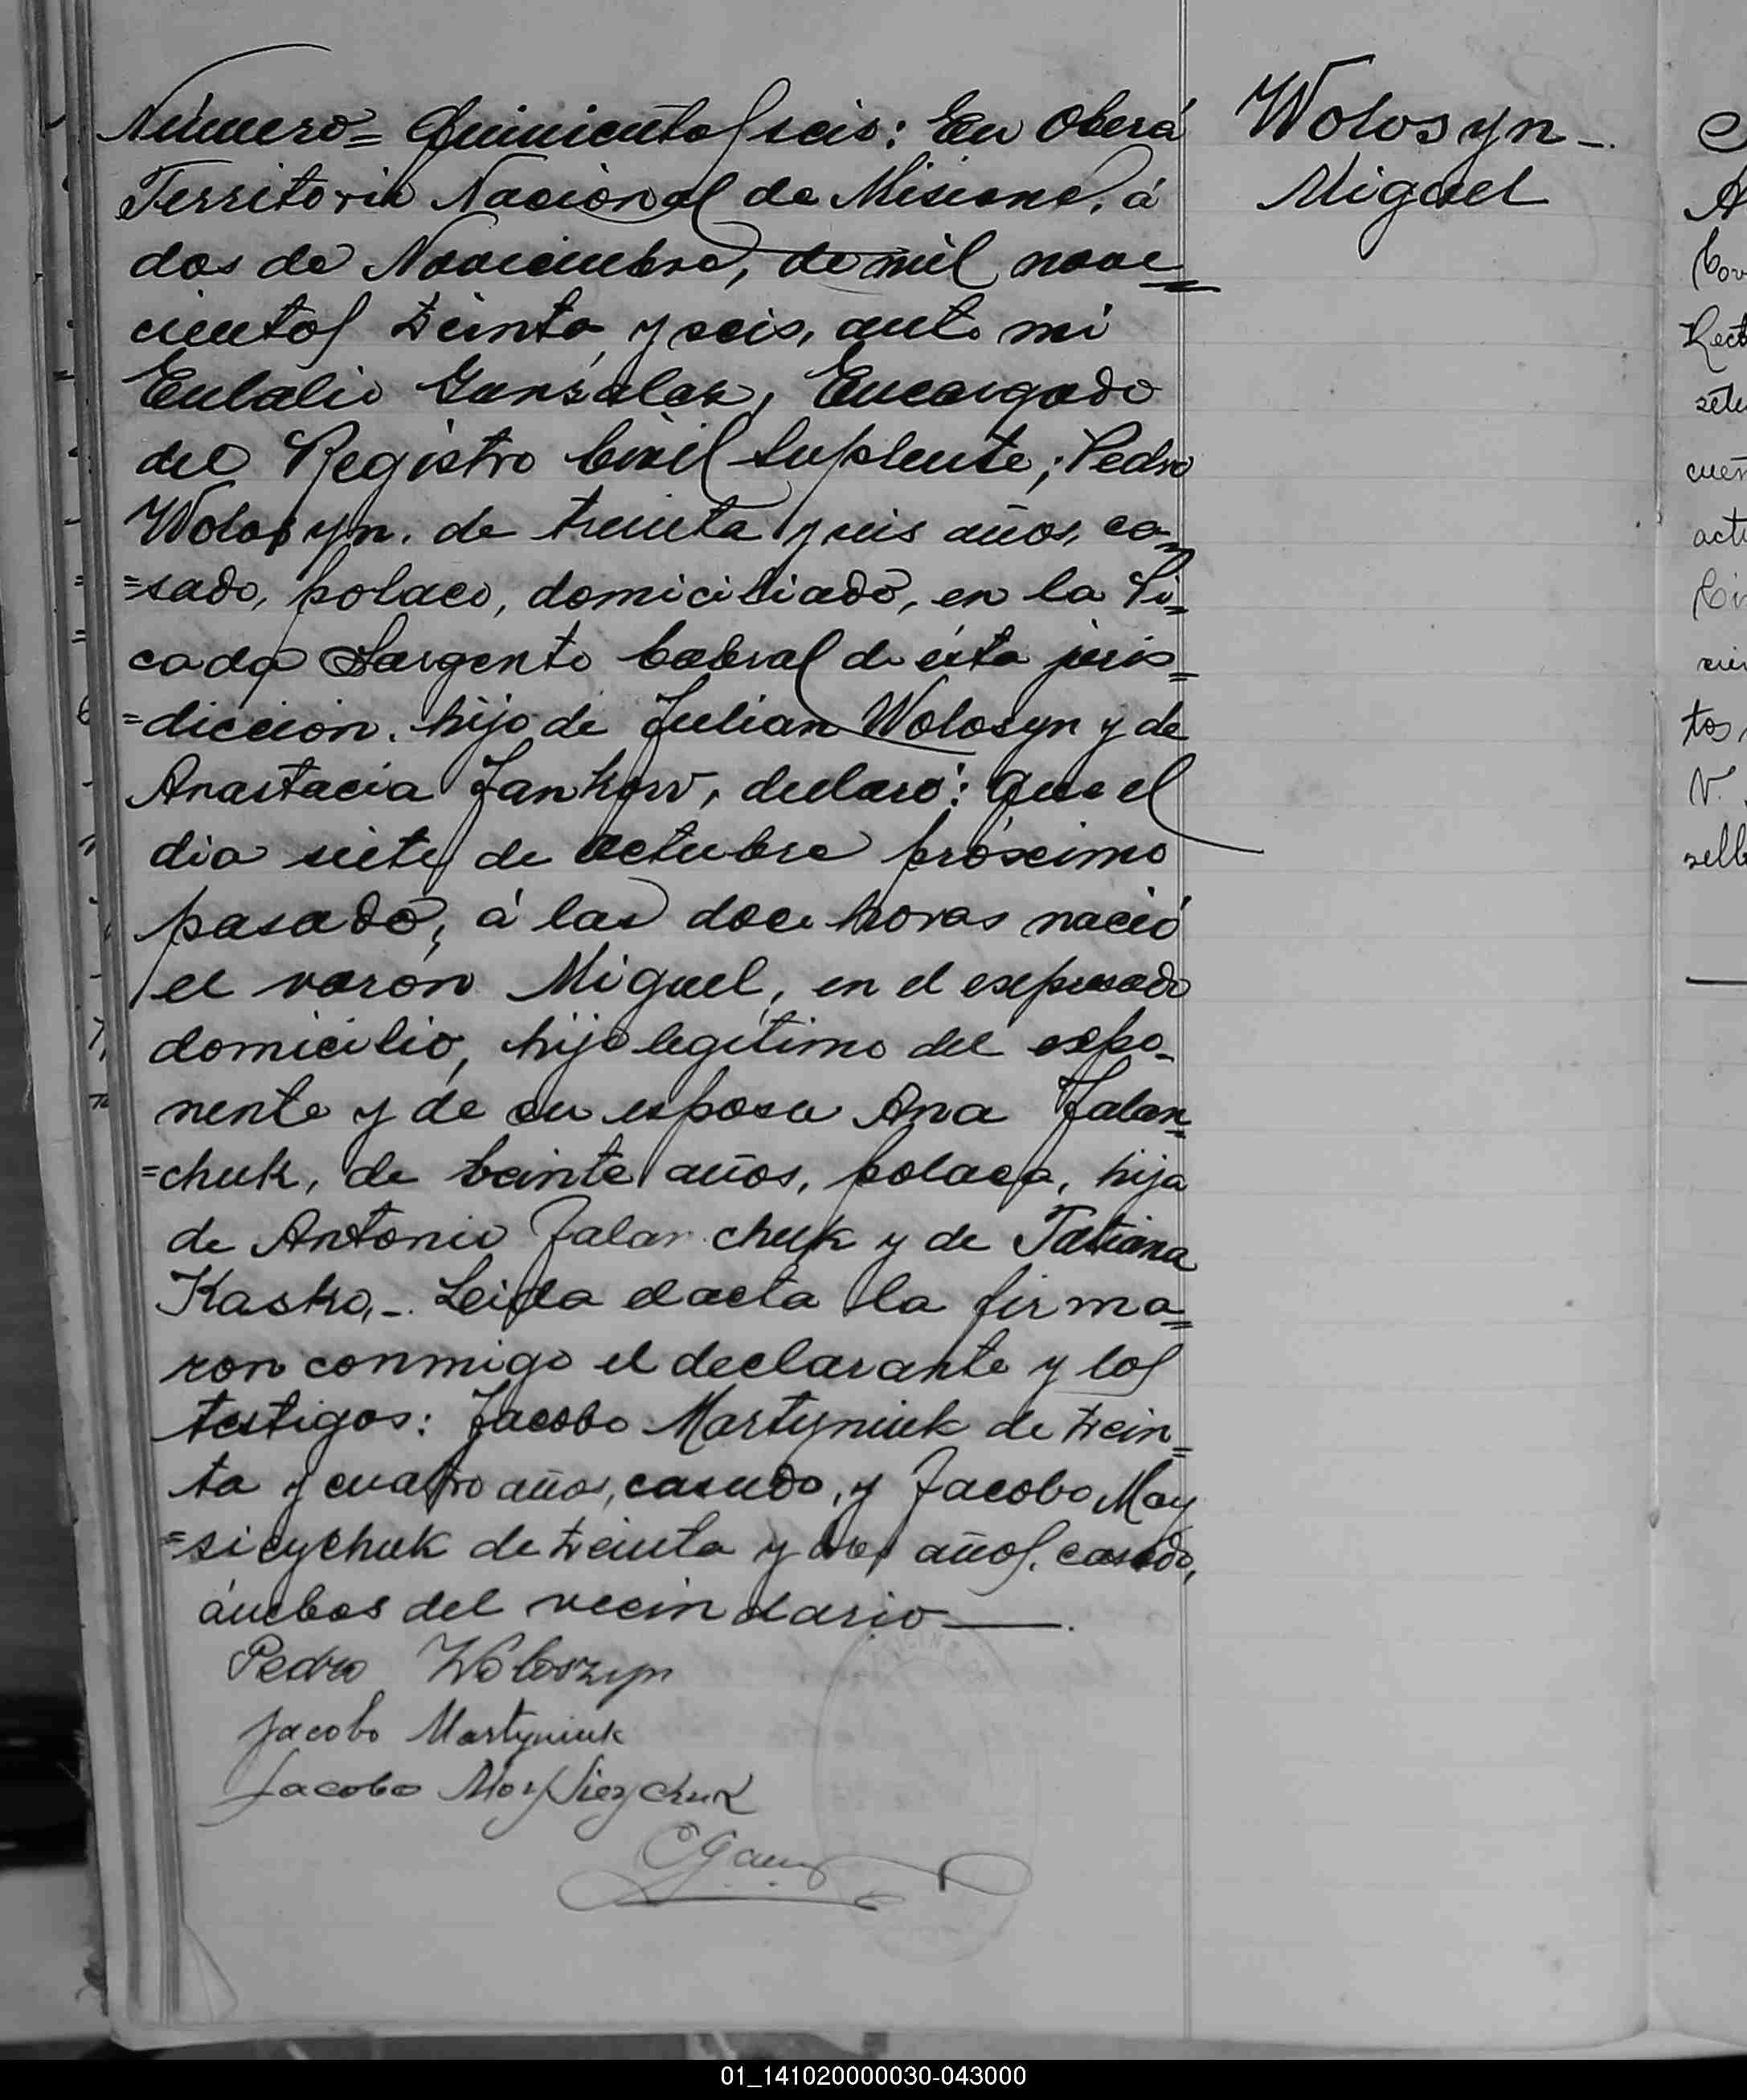 Número = Quinientos seis: En Oberá
Territorio Nacional de Misiones, á
dos de Noviembre, de mil nove=
cientos treinta y seis, ante mi
Eulalio Gonzalez, Encargado
del Registro Civil Suplente; Pedro
Wolosyn. de treinta y seis años, ca=
=sado, polaco, domiciliado, en la Pi=
cada Sargento Cabral de ésta juris=
=dicción. hijo de Julian Wolosyn y de
Anastacia Jankow, declaró: Que el
dia siete de Octubre próximo
pasado, á las doce horas nació
el varón Miguel, en el expresado
domicilio, hijo legítimo del expo-
nente y de su esposa Ana Jalan=
=chuk, de beinte años, polaca, hija
de Antonio Jalanchuk y de Tatiana
Kasko,-. Leida el acta la firma=
ron conmigo el declarante y los
testigos: Jacobo Martyniuk de trein=
ta y cuatro años, casado, y Jacobo May
=sieychuk de treinta y tres años. casado,
ámbos del vecindario —.
Pedro Woloszyn
Jacobo Martyniuk
Jacobo
EGonz
Wolosyn-.
Miguel
Rect
cuen
act
tos
V.
01_141020000030-043000